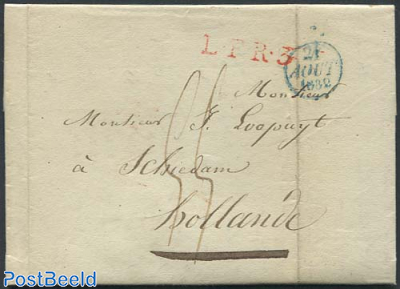 L.P.R.3
AOUT
Monsieur
Monsieur J. Loopuyt
à Schiedam
hollande
PostBeeld